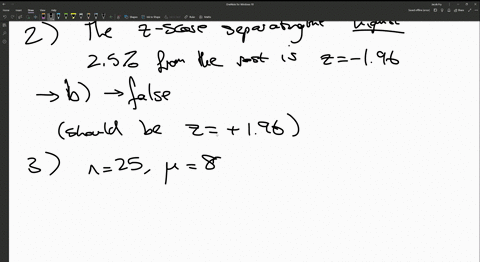 2) The z-score separating the highest
2.5% from the rest is z=-1.96
→ b) → false
(should be z=+1.96)
3) n=25, μ=8